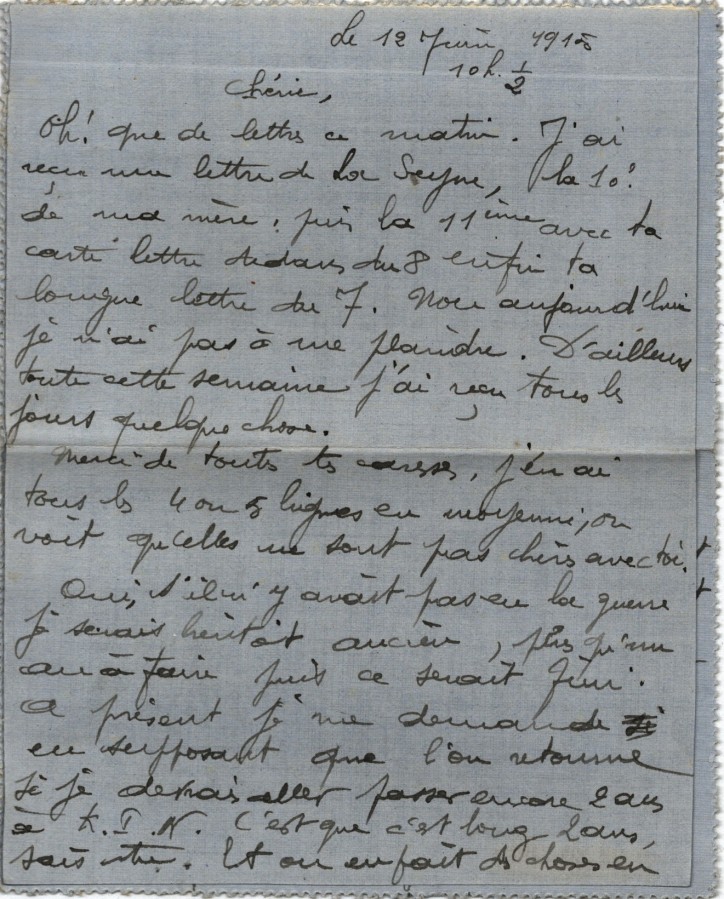 Le 12 Juin 1915
10h. 1/2
Chérie,
Oh! que de lettres ce matin. J'ai
reçu une lettre de La Seyne, la 10e
de ma mère, puis la 11ième avec ta
carte lettre dedans du 8 enfin ta
longue lettre du 7. Non aujourd'hui
je n'ai pas à me plaindre. D'ailleurs
toute cette semaine j'ai reçu tous les
jours quelque chose.
Merci de toutes tes caresses, j'en ai
tous les 4 ou 5 lignes en moyenne, on
voit qu'elles ne sont pas chers avec toi.
Oui, s'il n'y avait pas eu la guerre
je serais bientôt ancien, plus qu'un
an à faire puis ce serait fini.
A présent je me demande si
en supposant que l'on retourne
si je devrais aller passer encore 2 ans
à K.I.N. C'est que c'est long 2 ans,
sais-tu. Et on en fait des choses en